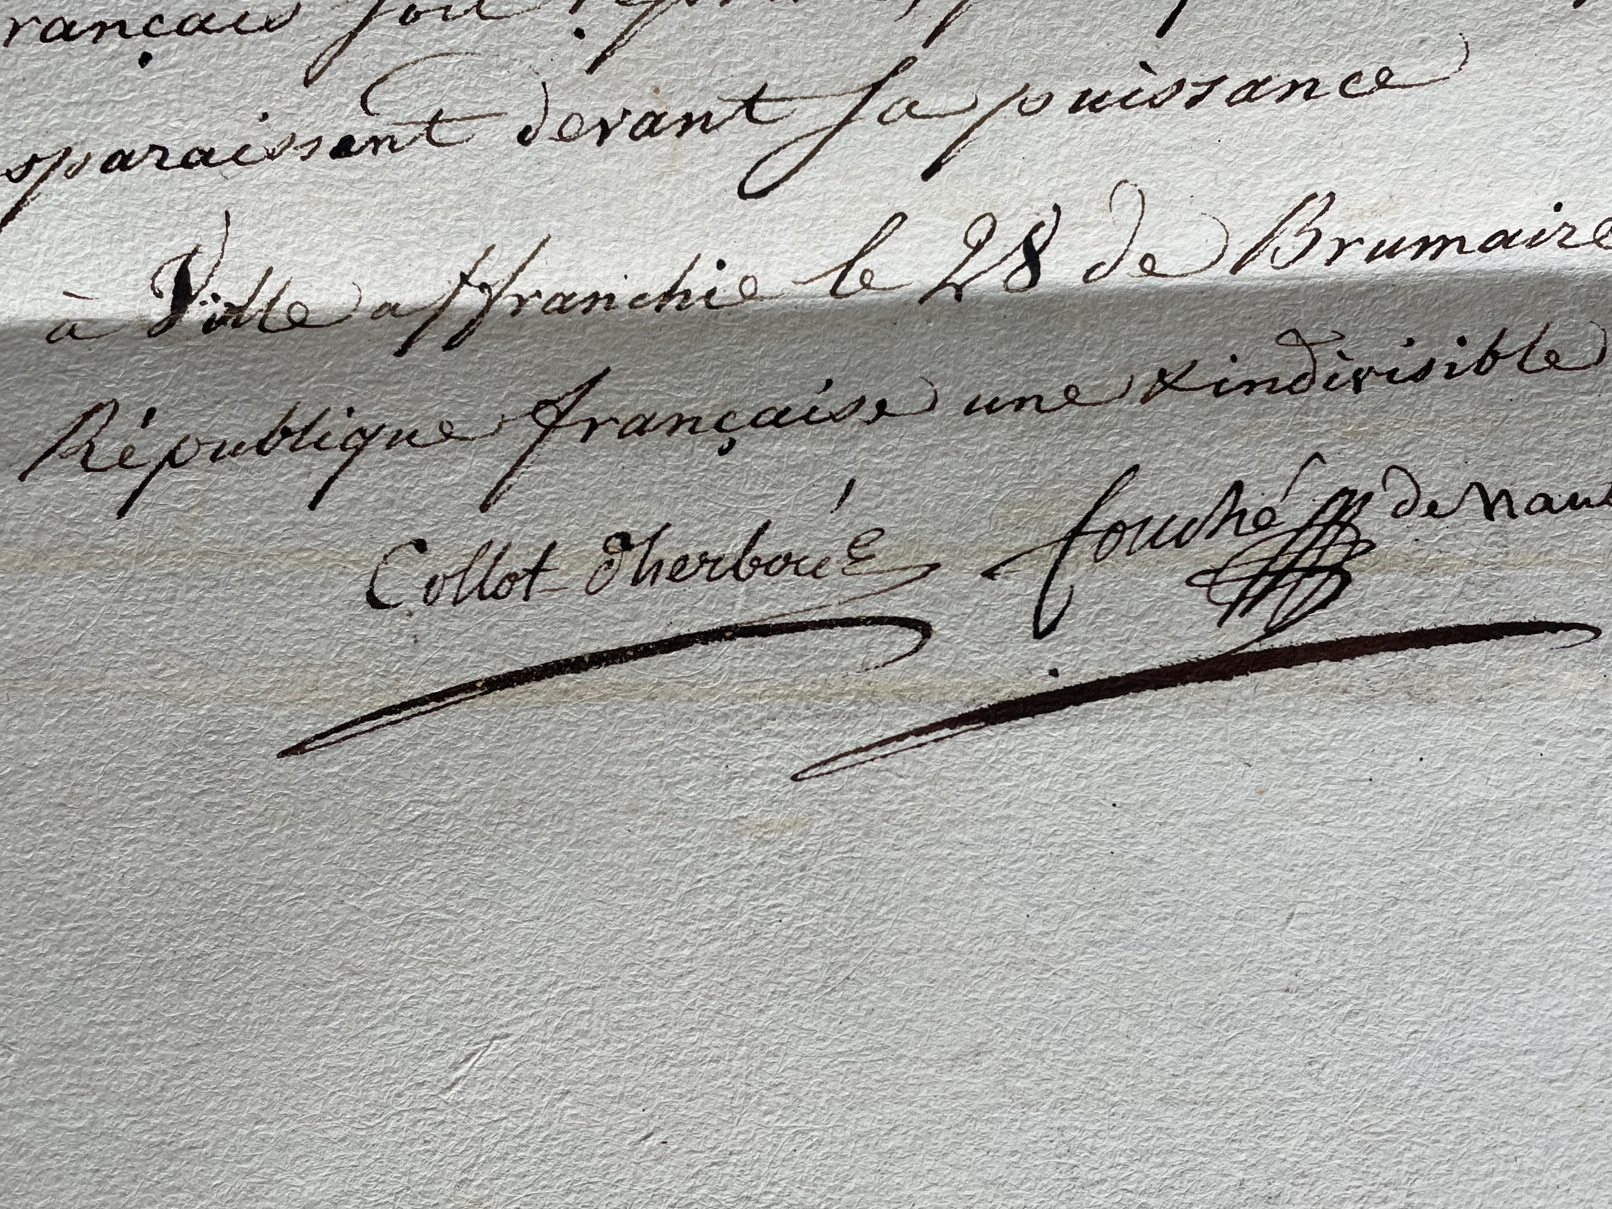 rançais soit
sparaissent devant sa puissance
à Ville affranchie le 28 de Brumaire
République française une & indivisible
Collot d'herbois fouché de Nant